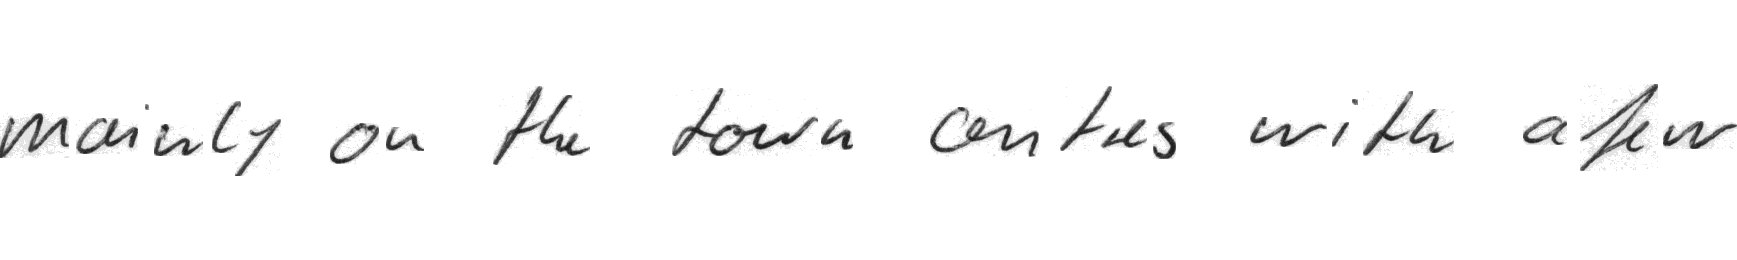 mainly on the town centres with a few